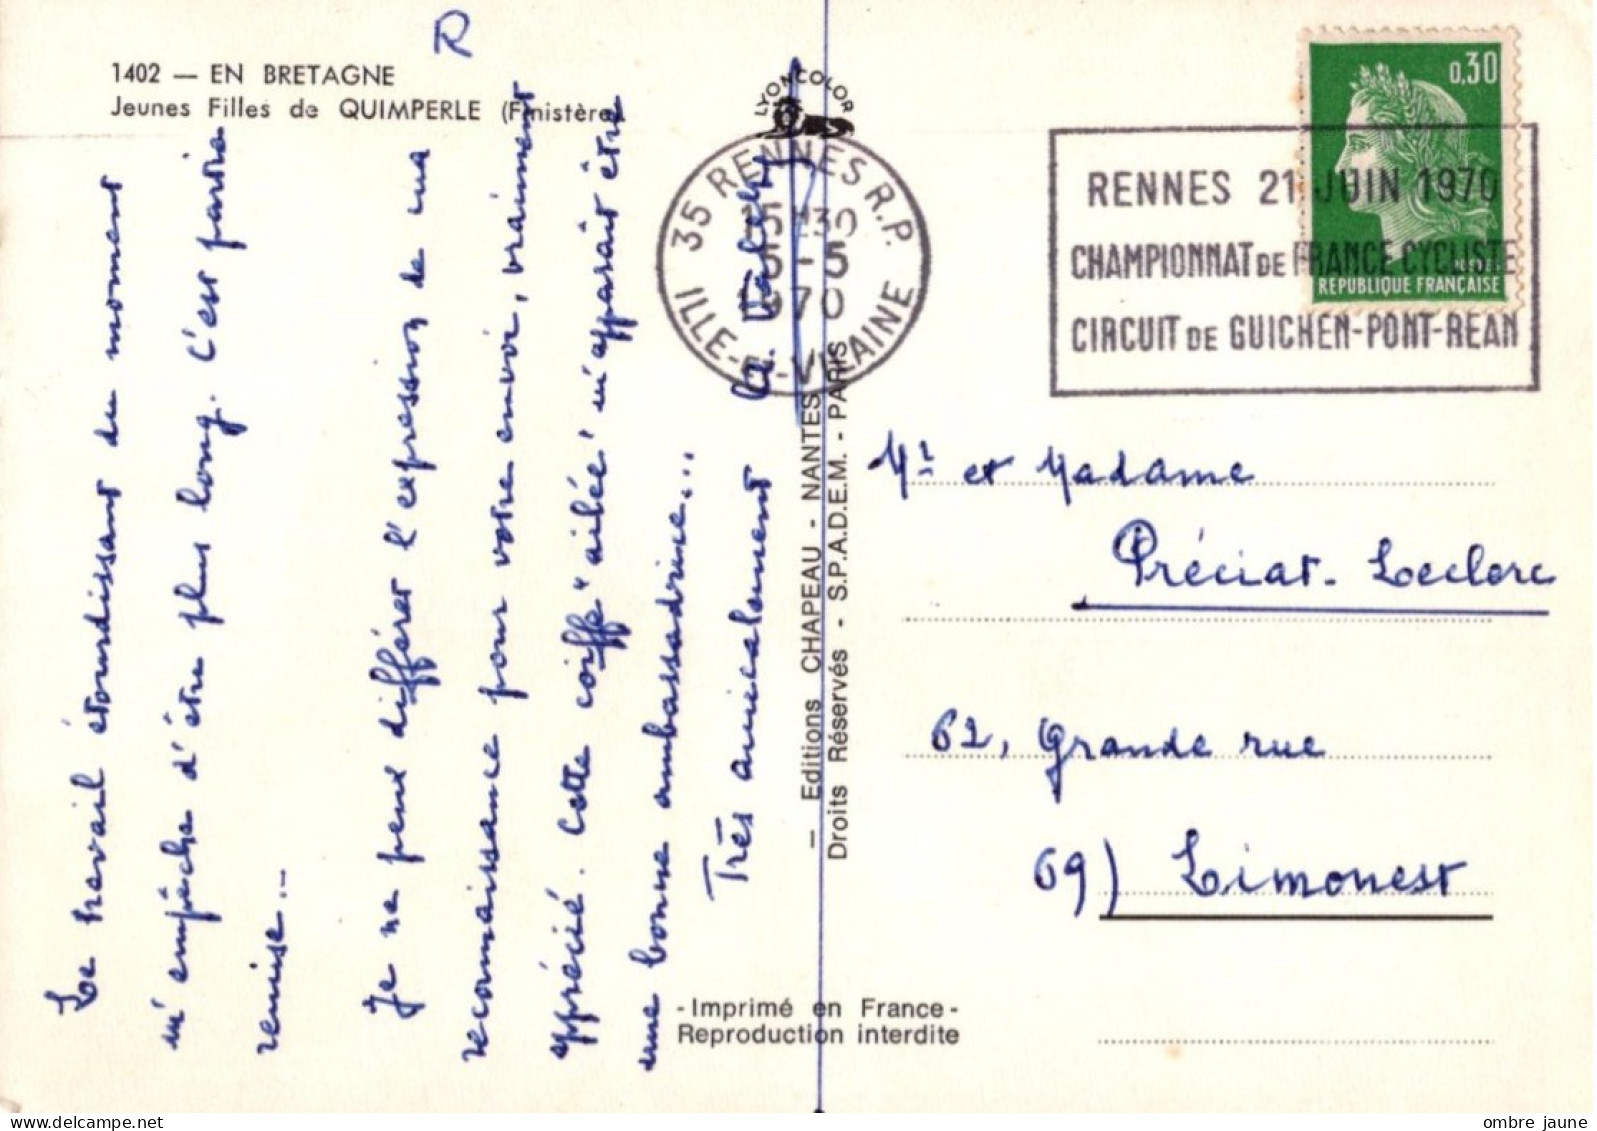 R
1402 — EN BRETAGNE
Jeunes Filles de QUIMPERLE (Finistère)
Le travail étourdissant du moment
m'empêche d'être plus long. C'est partie
remise..
Je ne peux différer l'expression de ma
reconnaissance pour votre envoi, vraiment
apprécié. Cette coiffe "ailée" m'apparaît être
une bonne ambassadrice...
Très amicalement
LYONCOLOR
35 RENNES R.P.
15H30
5-5
1970
ILLE-ET-VILAINE
— Editions CHAPEAU - NANTES
Droits Réservés - S.P.A.D.E.M. - PARIS
- Imprimé en France -
Reproduction interdite
0,30
POSTES
REPUBLIQUE FRANÇAISE
RENNES 21 JUIN 1970
CHAMPIONNAT DE FRANCE CYCLISTE
CIRCUIT DE GUICHEN-PONT-REAN
Mr et Madame
Préciat-Leclerc
62, Grande rue
69) Limonest
ombre jaune